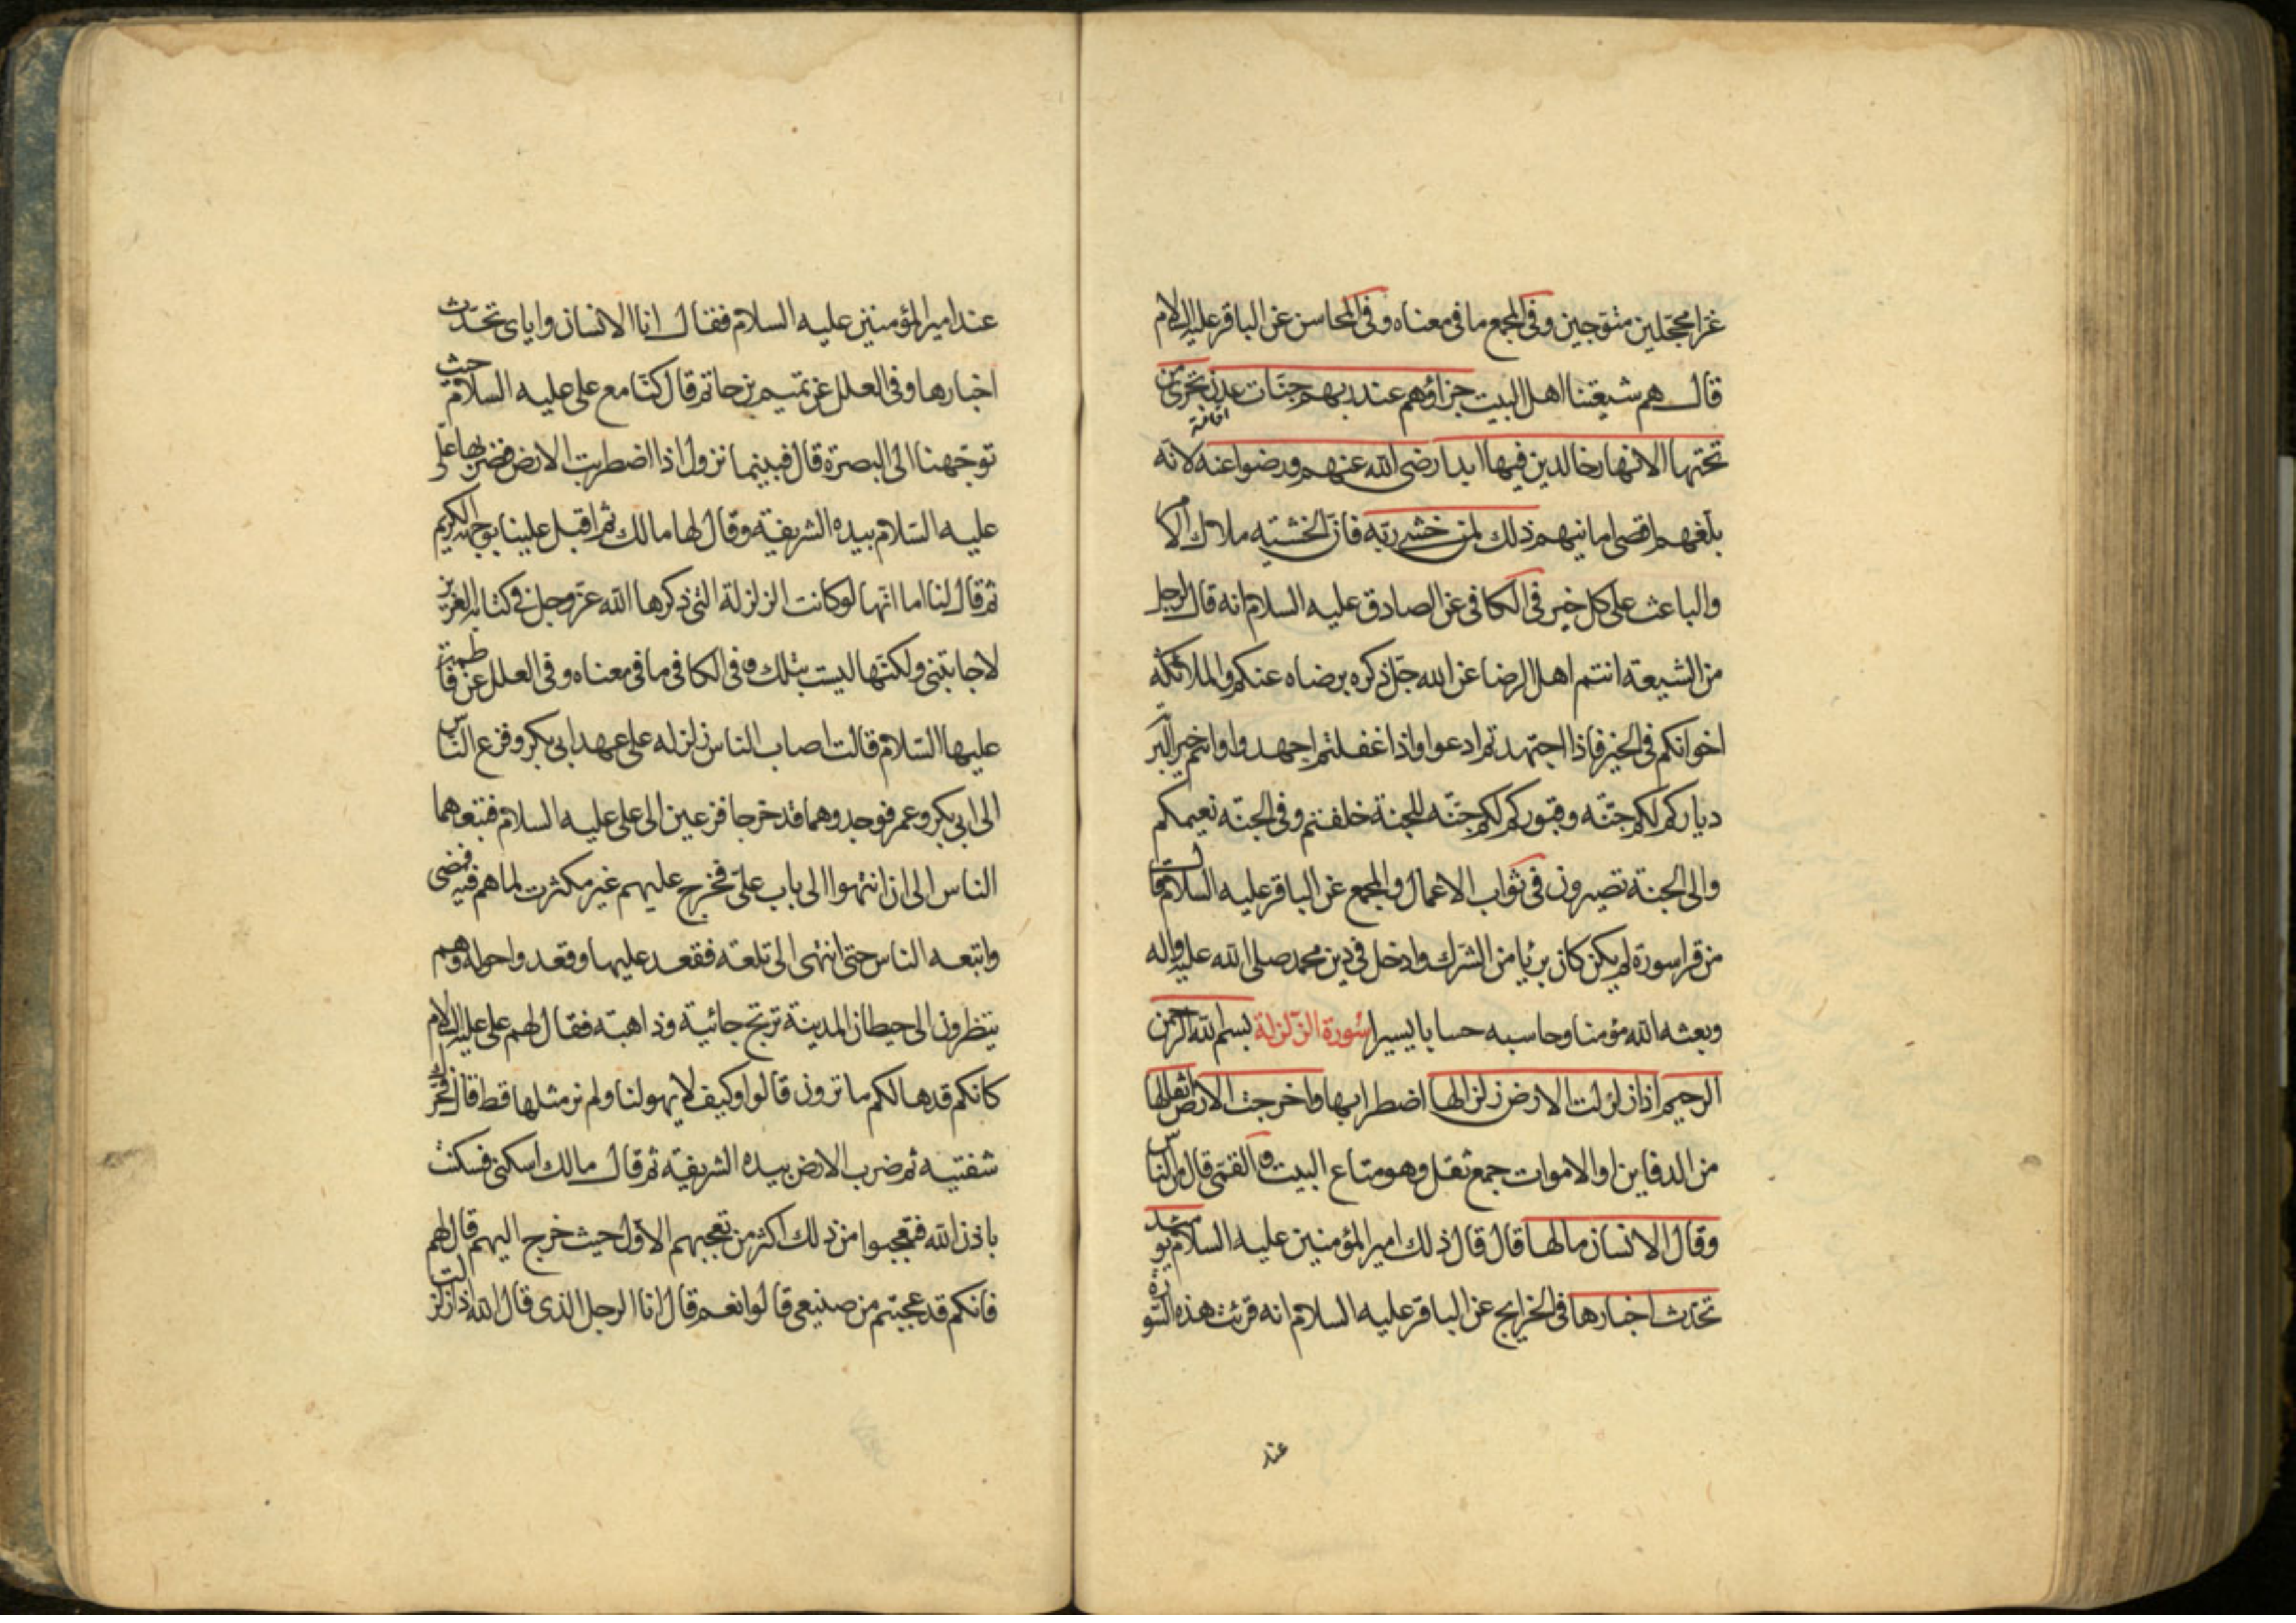 غرا محجلين متوجين وفي المجمع ما في معناه وفي المحاسن عن الباقر عليه السلام
قال هم شيعتنا اهل البيت جزاؤهم عند ربهم جنات عدن تجري من
تحتها الانهار خالدين فيها ابدا رضي الله عنهم ورضوا عنه لانه
بلغهم اقصى امانيهم ذلك لمن خشي ربه فان الخشية ملاك الامر
والباعث على كل خير في الكافي عن الصادق عليه السلام انه قال لرجل
من الشيعة انتم اهل الرضا عن الله جل ذكره برضاه عنكم والملائكة
اخوانكم في الخير فاذا اجتهدتم ادعوا واذا غفلتم اجهدوا وانتم خير البرية
دياركم لكم جنة وقبوركم لكم جنة للجنة خلقتم وفي الجنة نعيمكم
والى الجنة تصيرون في ثواب الاعمال والمجمع عن الباقر عليه السلام قال
من قرا سورة لم يكن كان بريئا من الشرك وادخل في دين محمد صلى الله عليه واله
وبعثه الله مؤمنا وحاسبه حسابا يسيرا سورة الزلزلة بسم الله الرحمن
الرحيم اذا زلزلت الارض زلزالها اضطرابها واخرجت الارض اثقالها
من الدفاين او الاموات جمع ثقل وهو متاع البيت والقمي قال من الناس
وقال الانسان مالها قال قال ذلك امير المؤمنين عليه السلام يومئذ
تحدث اخبارها في الخرايج عن الباقر عليه السلام انه قرئت هذه السورة
عند
عند امير المؤمنين عليه السلام فقال انا الانسان واياى تحدث
اخبارها وفي العلل عن تميم بن حاتم قال كنا مع على عليه السلام حيث
توجهنا الى البصرة قال فبينما نزول اذا اضطربت الارض فضربها على
عليه السلام بيده الشريفة وقال لها مالك ثم اقبل علينا بوجهه الكريم
ثم قال لنا اما انها لو كانت الزلزلة التي ذكرها الله عز وجل في كتابه العزيز
لاجابتني ولكنها ليست بتلك وفي الكافي ما في معناه وفي العلل عن فاطمة
عليها السلام قالت اصاب الناس زلزله على عهد ابى بكر وفزع الناس
الى ابى بكر وعمر فوجدوهما قد خرجا فزعين الى على عليه السلام فتبعهما
الناس الى ان انتهوا الى باب على فخرج عليهم غير مكترث لما هم فيه فمضى
واتبعه الناس حتى انتهى الى تلعة فقعد عليها وقعدوا حوله وهم
ينظرون الى حيطان المدينة ترتج جائية وذاهبة فقال لهم على عليه السلام
كانكم قد هالكم ما ترون قالوا وكيف لا يهولنا ولم نر مثلها قط قال فحرك
شفتيه ثم ضرب الارض بيده الشريفة ثم قال مالك اسكنى فسكنت
باذن الله فتعجبوا من ذلك اكثر من تعجبهم الاول حيث خرج اليهم قال لهم
فانكم قد عجبتم من صنيعى قالوا نعم قال انا الرجل الذى قال الله اذا زلزلت